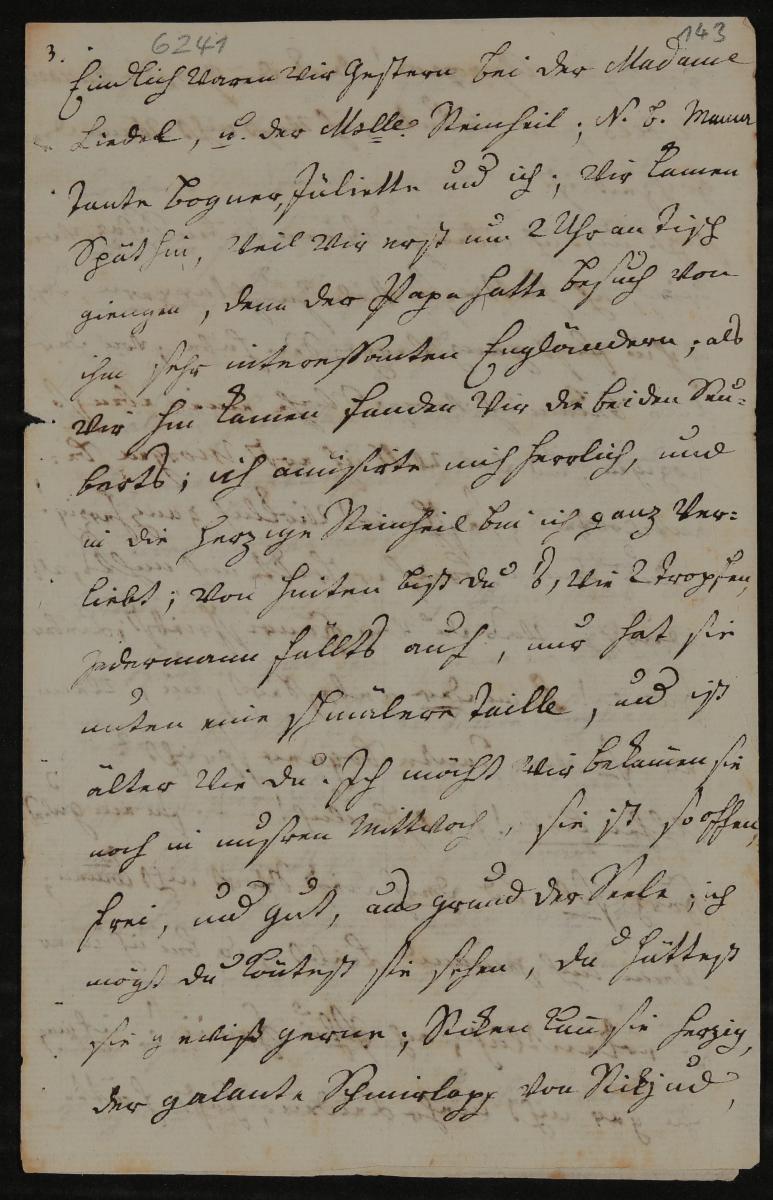 3.
6241
143
Endlich waren wir gestern bei der Madame
Liedel, u. der Mslle. Steinheil; N. b. Mama
Tante bogner, Juliette und ich; wir kamen
Spät hin, weil wir erst um 2 Uhr an Tisch
giengen, denn der Papa hatte besuch von
ihm sehr interessanten Engländern; als
wir hin kamen fanden wir die beiden Seu-
berts; ich amusirte mich herrlich, und
in die herzige Steinheil bin ich ganz ver-
liebt; von hinten bist du 's, wie 2 tropfen,
jedermann fällts auf, nur hat sie
unten eine schmälere Taille, und ist
älter wie du. Ich möcht wir bekämen sie
noch in unsren Mittwoch, sie ist so offen,
frei, und gut, aus grund der Seele; ich
mögt du köntest sie sehen, du hättest
sie gewiß gerne; Stiken kann sie herzig,
der galante Schmirlapp von Stikjud,